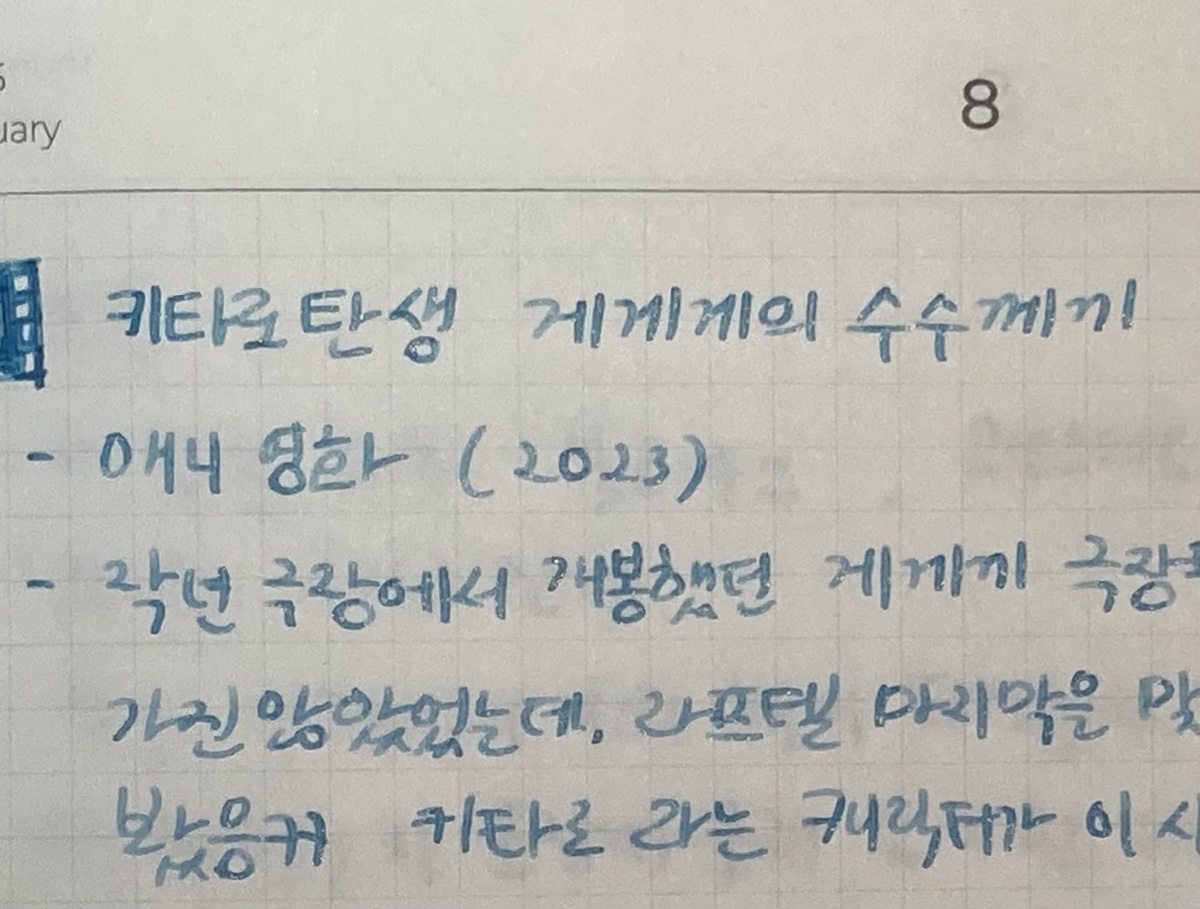 8
키타로 탄생 게게게의 수수께끼
- 애니 영화 (2023)
- 작년 극장에서 개봉했던 게게끼 극장
가진 않았었는데, 라프텔 마지막을
봤음ㅋㅋ 키타로 라는 캐릭터가 이